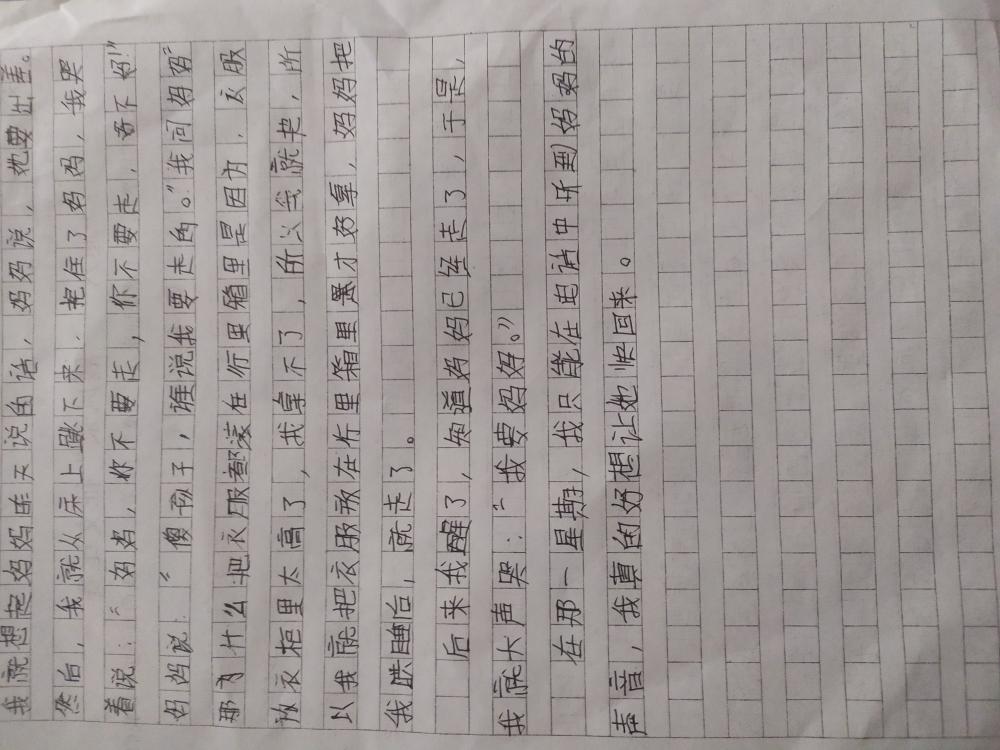 我就想起妈妈昨天说的话，妈妈说，她要出差。
然后，我就从床上蹦下来，抱住了妈妈，我哭
着说：“妈妈，你不要走，你不要走，好不好！”
妈妈说：“傻孩子，谁说我要走的。”我问妈妈
那为什么把衣服都装在行里箱里是因为，衣服
放衣柜里太高了，我拿不了，所以我就把，所
以我就把衣服放在行里箱里第才好拿，妈妈把
我哄睡后，就走了。
后来我醒了，知道妈妈已经走了，于是，
我就大声哭：“我要妈妈。”
在那一星期，我只能在电话中听到妈妈的
声音，我真的好想让她快回来。